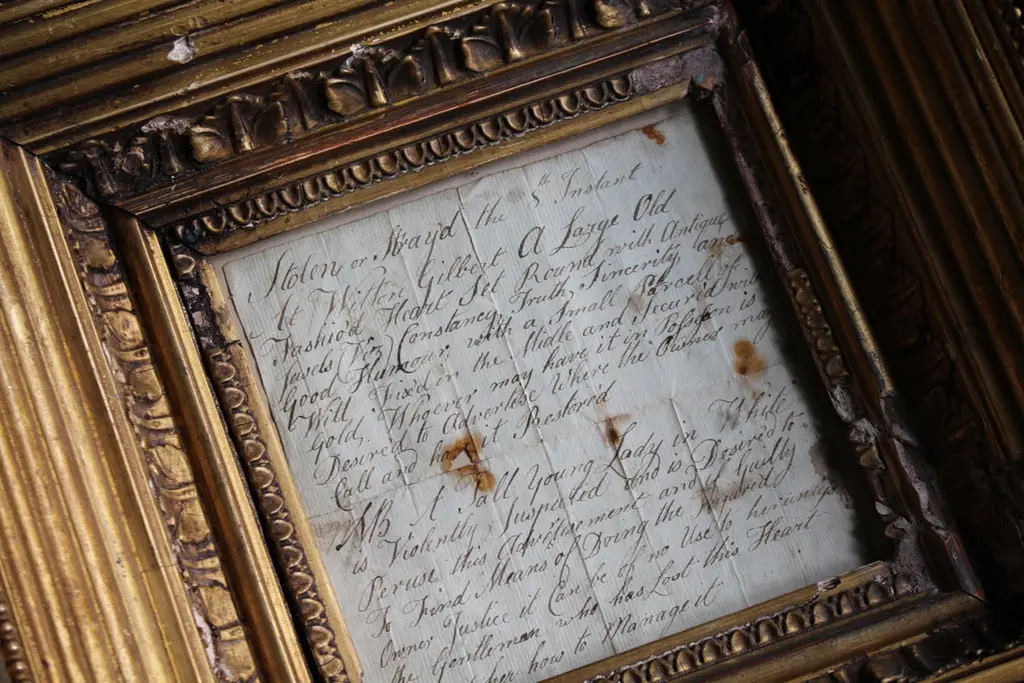 Stolen or Stray'd the 5th Instant
At Wilton Gilbert A Large Old
Fashio'd Heart Set Round with Antique
Jewels Viz Constancy, Truth, Sincerity, and
Good Humour, with a Small Parcell of
Will Fixed in the Midle and Secured
Gold. Whoever may have it in is
Desired to Advertise Where the Owner may
Call and it Restored
NB A Tall Young Lady in While
is Violently Suspected and is Desired to
Peruse this Advertisement and if Guilty
To Find Means of Doing the Injured
Owner Justice it Can be of no Use to her
the Gentleman who has Lost this Heart
her how to Manage it